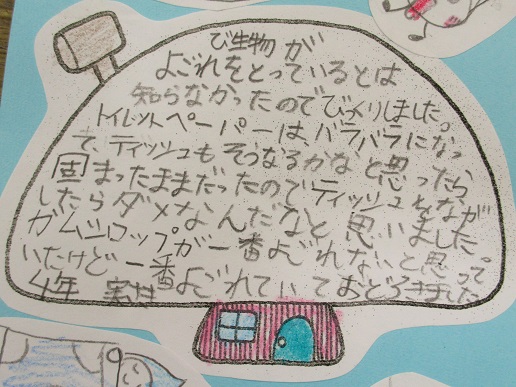 び生物が
よごれをとっているとは
知らなかったのでびっくりしました。
トイレットペーパーは、バラバラになっ
て、ティッシュもそうなるかなと思ったら
固まったままだったのでティッシュをなが
したらダメなんだなと思いました。
ガムシロップが一番よごれないと思って
いたけど一番よごれていておどろきました
4年